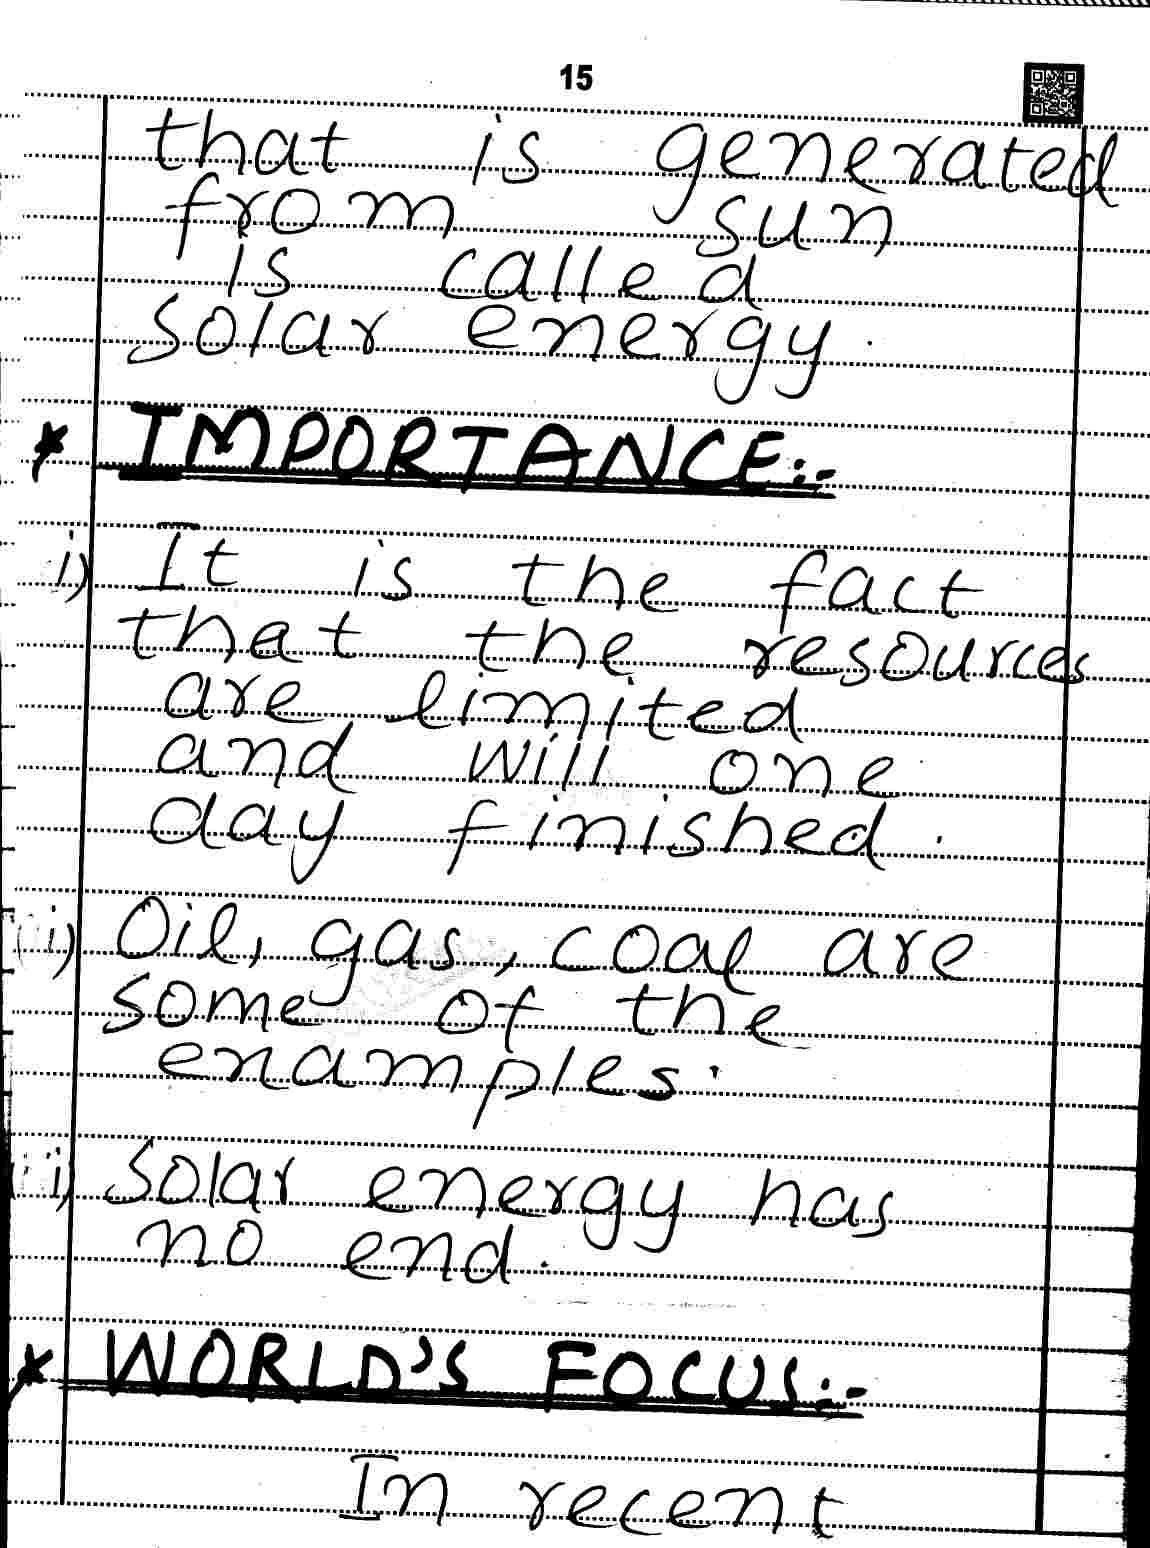 15
that is generated
from sun
is called
solar energy.
* IMPORTANCE:-
i) It is the fact
that the resources
are limited
and will one
day finished.
ii) Oil, gas, coal are
some of the
enamples.
iii) Solar energy has
no end.
* WORLD'S FOCUS:-
In recent